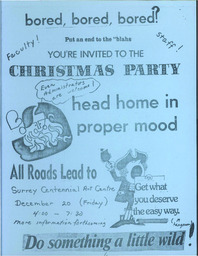 bored, bored, bored?
Put an end to the "blahs
Faculty!
Staff!
YOU'RE INVITED TO THE
CHRISTMAS PARTY
Even Administrators are welcome!
head home in
proper mood
All Roads Lead to
Surrey Centennial Art Centre
December 20 (Friday)
4:00 — 7:30
more information forthcoming
Get what
you deserve
the easy way.
Do something a little wild!